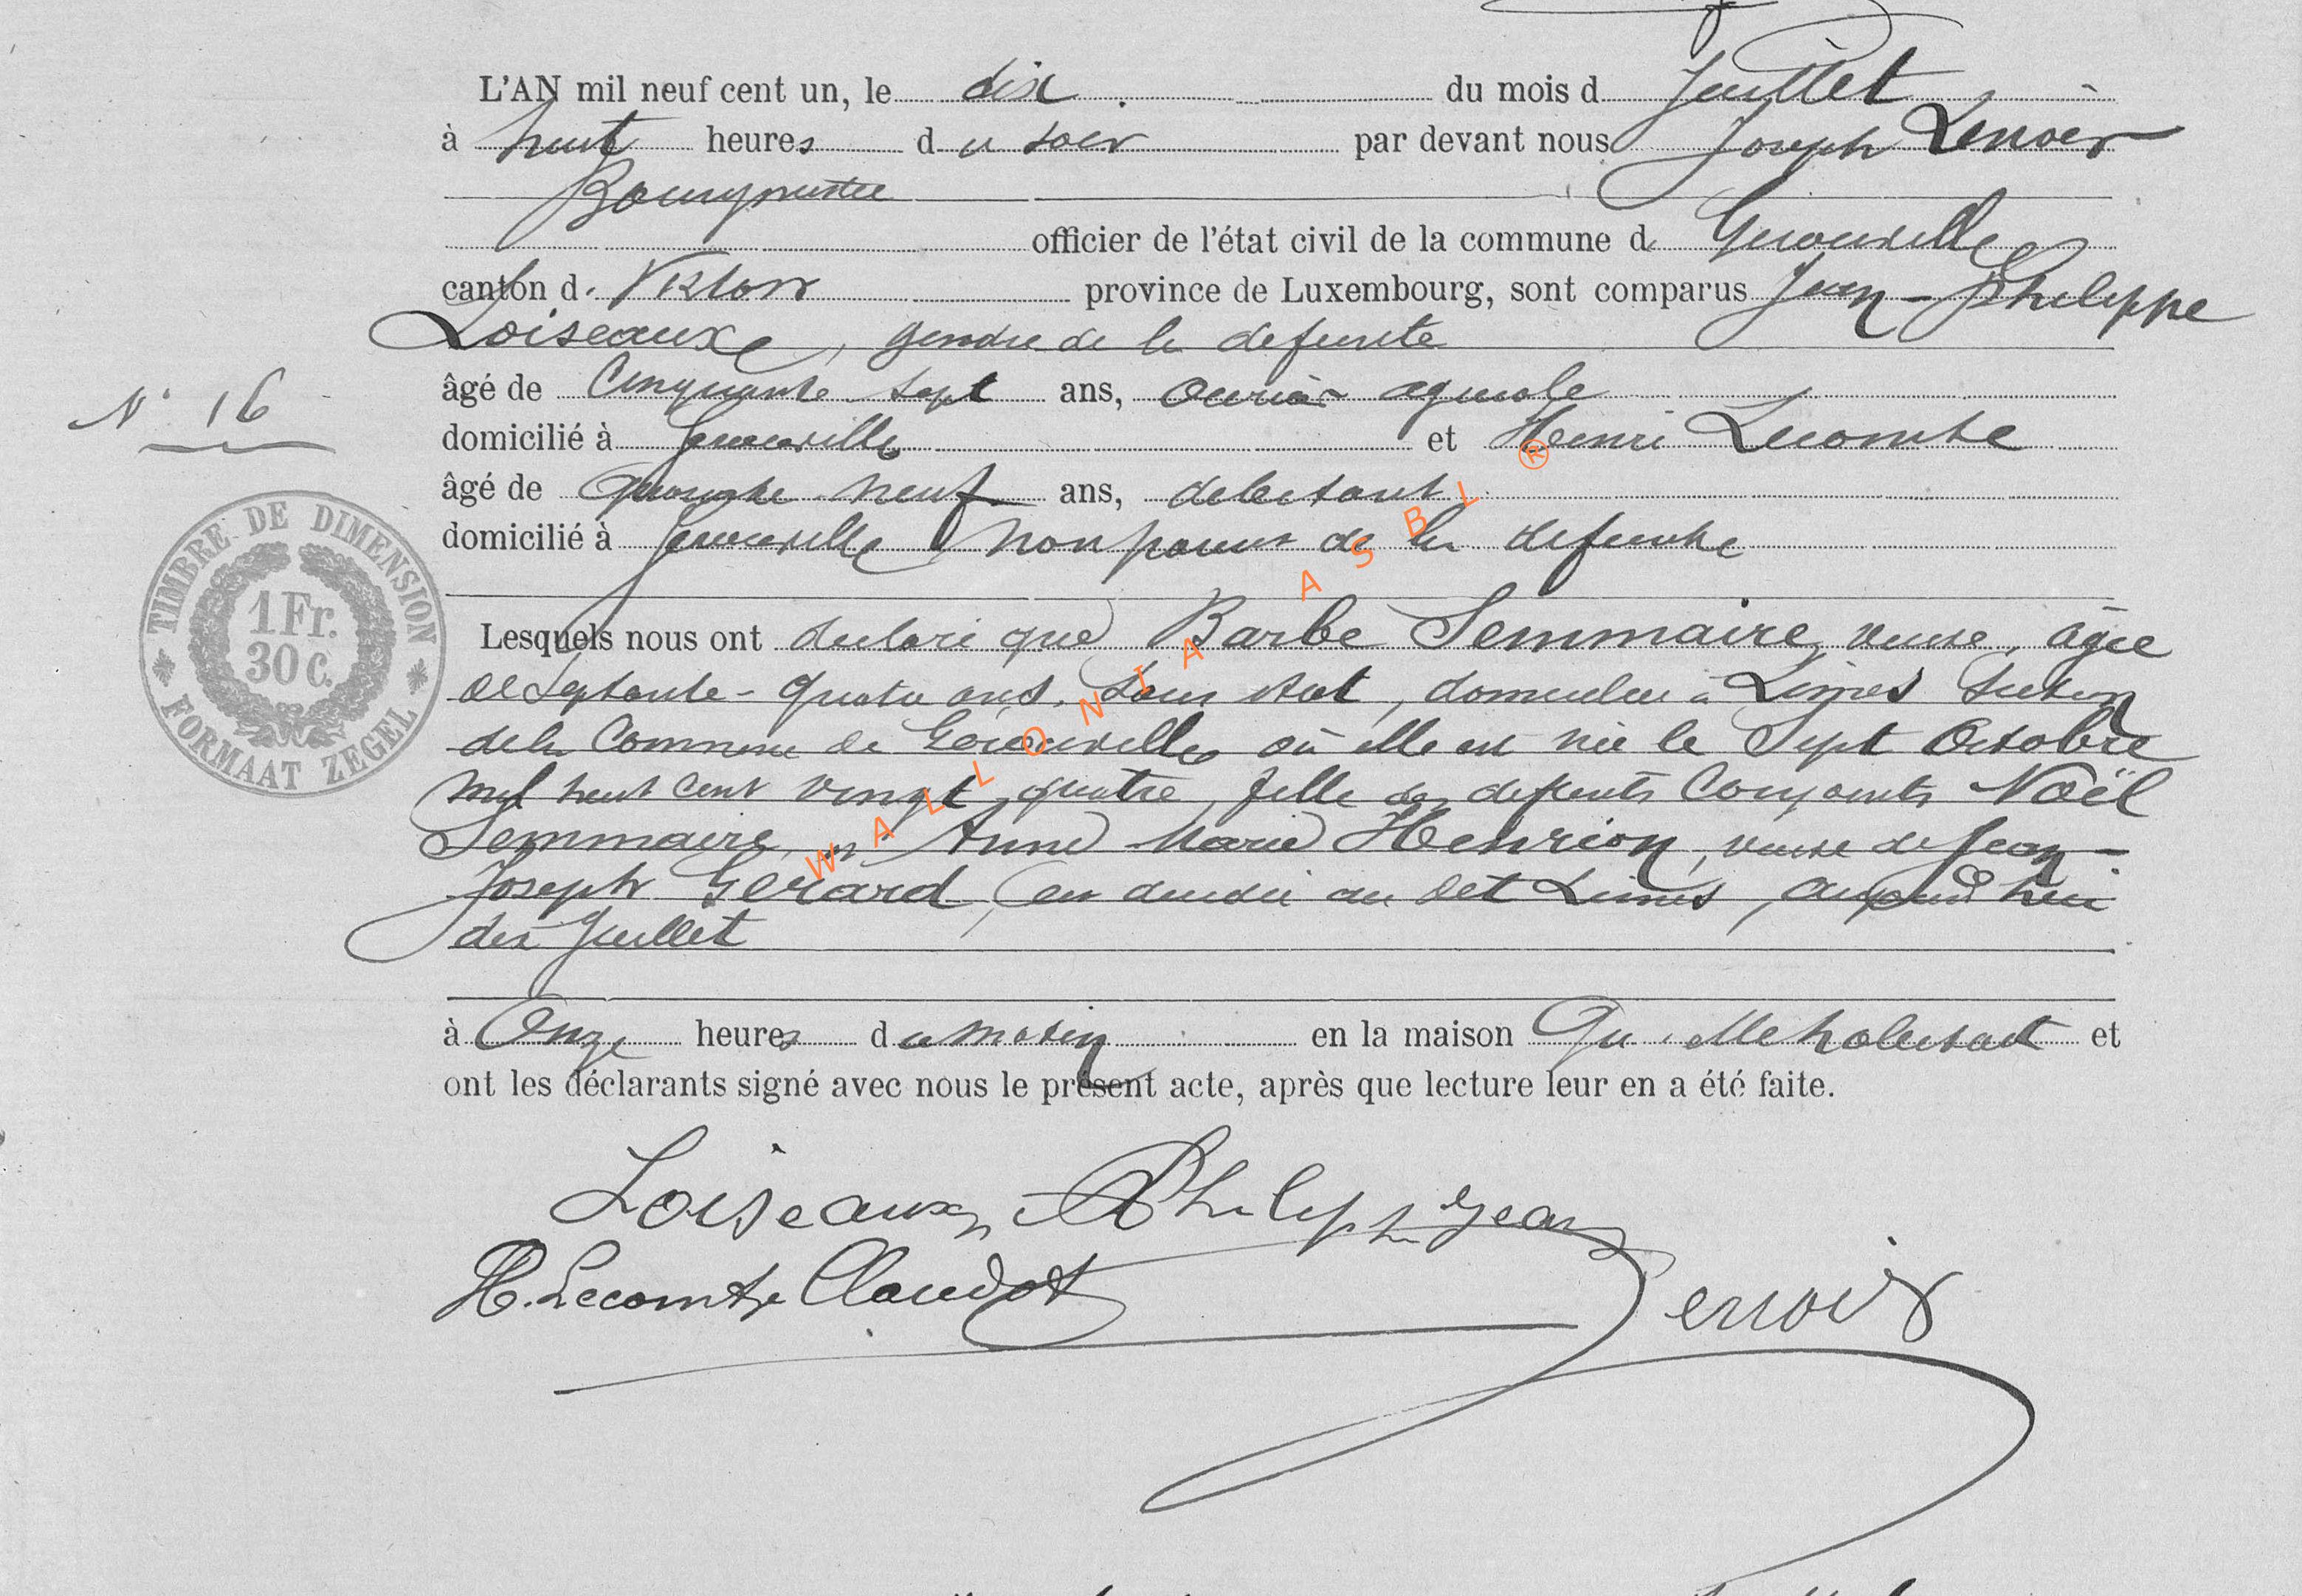 L'AN mil neuf cent un, le dix du mois d Juillet
à huit heures du soir par devant nous Joseph Lenoir
Bourgmestre
officier de l'état civil de la commune de Gerouville
canton d. Virton province de Luxembourg, sont comparus Jean-Philippe
Loiseaux, gendre de la defunte
N° 16
âgé de Cinquante sept ans, ouvrier agricole
domicilié à Gerouville et Henri Lecomte
âgé de Quarante neuf ans, debitant
domicilié à Gerouville non parent de la defunte
TIMBRE DE DIMENSION
1 Fr.
30 c.
FORMAAT ZEGEL
Lesquels nous ont declaré que Barbe Semmaire, veuve, âgée
de Septante-quatre ans, sans état, domiciliée à Limes section
de la Commune de Gérouville où elle est née le Sept Octobre
Mil huit cent vingt quatre, fille des defunts Conjoints Noël
Semmaire et Anne Marie Henrion, veuve de Jean-
Joseph Gérard, est decedée au dit Limes, aujourd'hui
dix Juillet
à Onze heures du matin en la maison Qu'elle habitait et
ont les déclarants signé avec nous le présent acte, après que lecture leur en a été faite.
Loiseaux Philipp Jean
H. Lecomte Claudot Lenoir
WALLONIA ASBL ®